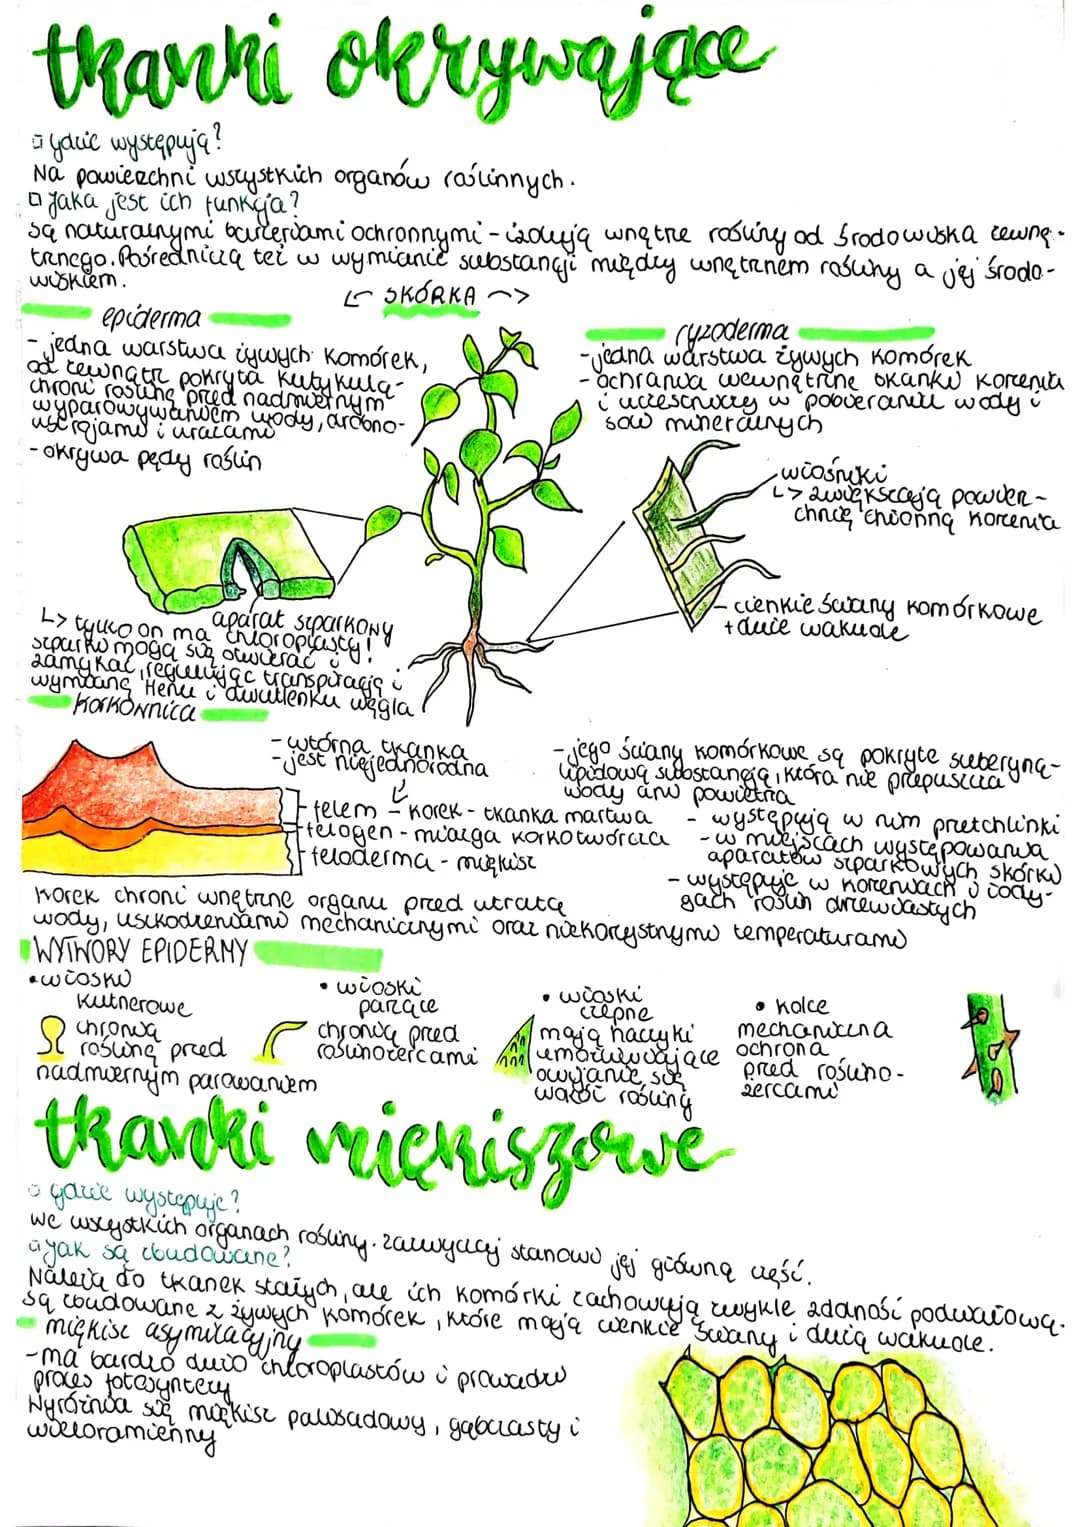 tkanki okrywające
gdzie występują?
Na powierzchni wszystkich organów roślinnych.
Jaka jest ich funkcja?
są naturalnymi barierami ochronnymi - izolują wnętrze rośliny od środowiska zewnę-
trznego. Pośredniczą też w wymianie substancji między wnętrznem rośliny a jej środo-
wiskiem.
SKÓRKA
epiderma
- jedna warstwa żywych komórek,
od zewnątrz pokryta kutykulą -
chroni roślinę przed nadmiernym
wyparowywaniem wody, drobno-
ustrojami i urazami
- okrywa pędy roślin
aparat szparkowy
↳ tylko on ma chloroplasty!
szparki mogą się otwierać i
zamykać, regulując transpirację i
wymianę tlenu i dwutlenku węgla
ryzoderma
- jedna warstwa żywych komórek
- ochrania wewnętrzne tkanki korzenia
i uczestniczy w pobieraniu wody i
soli mineralnych
włośniki
↳ zwiększają powierz-
chnię chłonną korzenia
- cienkie ściany komórkowe
+ duże wakuole
korkownica
- wtórna tkanka
- jest niejednorodna
felem - korek - tkanka martwa
felogen - miazga korkotwórcza
feloderma - miękisz
- jego ściany komórkowe są pokryte suberyną -
lipidową substancją, która nie przepuszcza
wody ani powietrza
- występują w nim przetchlinki
- w miejscach występowania
aparatów szparkowych skórki
- występuje w korzeniach i łody-
gach roślin drzewiastych
korek chroni wnętrze organu przed utratą
wody, uszkodzeniami mechanicznymi oraz niekorzystnymi temperaturami
WYTWORY EPIDERMY
• włoski
kutnerowe
chronią
roślinę przed
nadmiernym parowaniem
• włoski
parzące
chronią przed
roślinożercami
• włoski
czepne
mają haczyki
umożliwiające
owijanie się
wokół rośliny
• kolce
mechaniczna
ochrona
przed roślino-
żercami
tkanki miękiszowe
gdzie występuje?
we wszystkich organach rośliny. zazwyczaj stanowi jej główną część.
jak są zbudowane?
Należą do tkanek stałych, ale ich komórki zachowują zwykle zdolność podziałową.
są zbudowane z żywych komórek, które mają cienkie ściany i dużą wakuole.
miękisz asymilacyjny
- ma bardzo dużo chloroplastów i prowadzi
proces fotosyntezy
Wyróżnia się miękisz palisadowy, gąbczasty i
wieloramienny